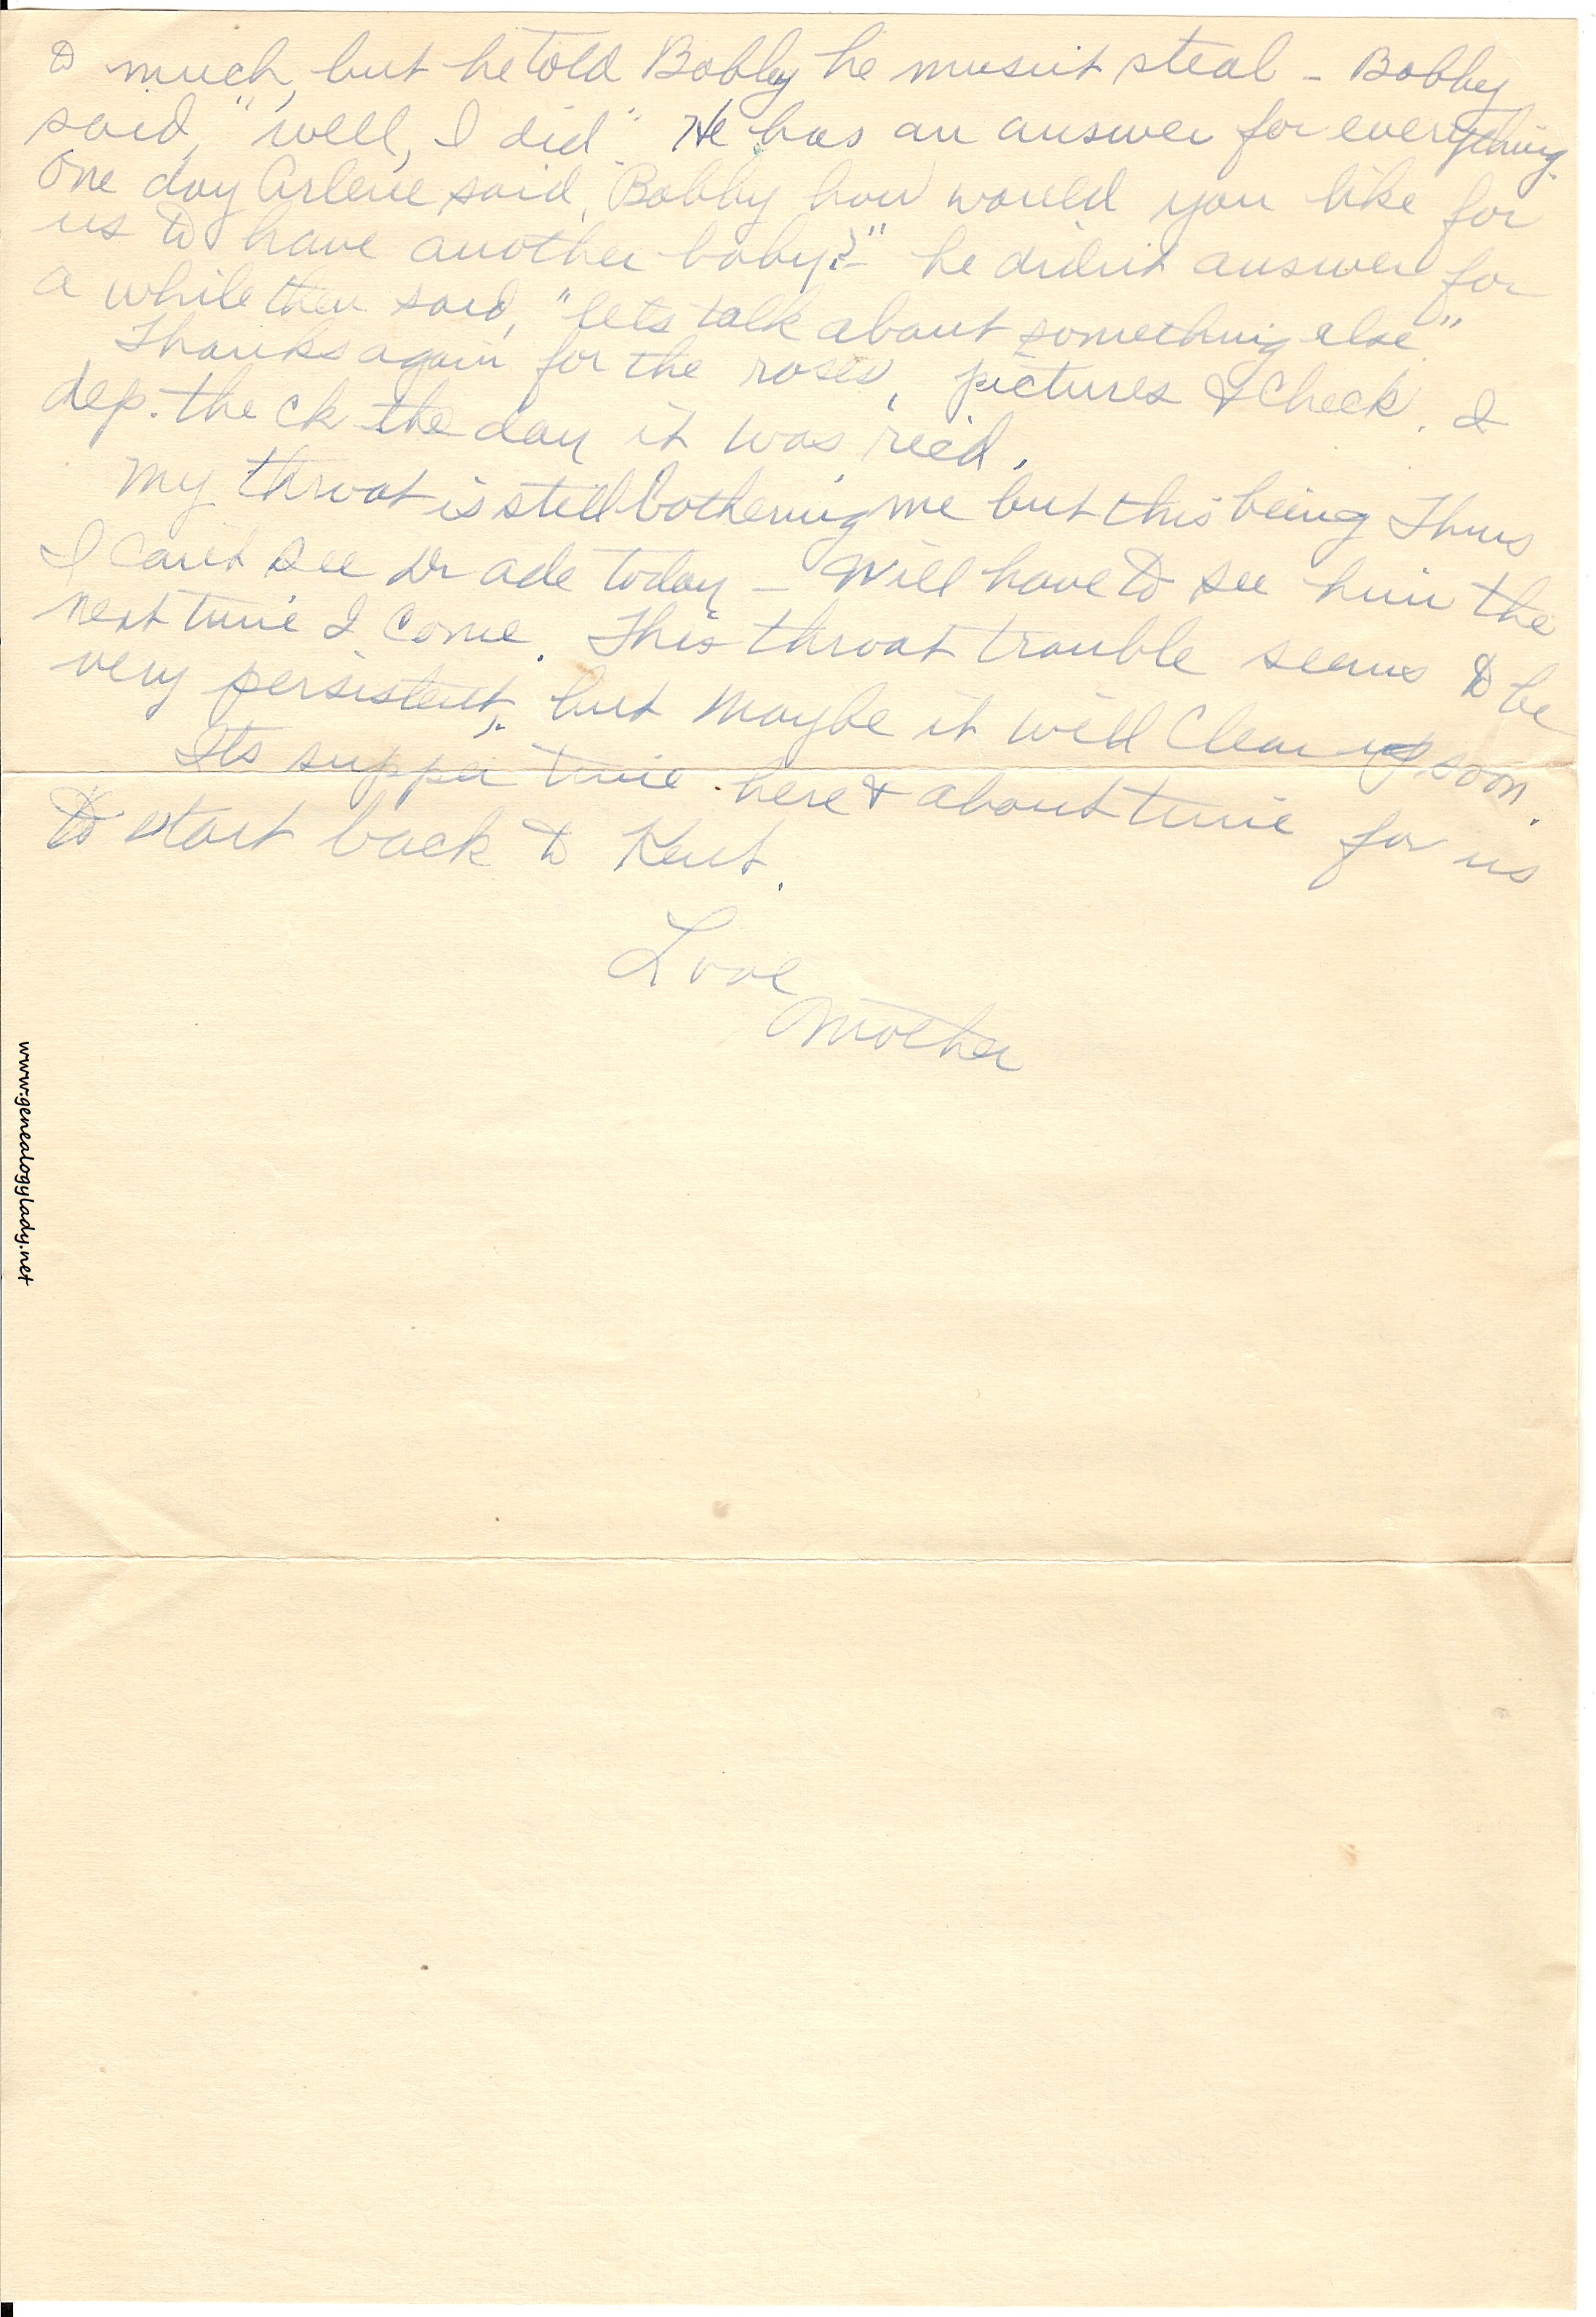 to much, but he told Bobby he musn't steal - Bobby
said, "well, I did" He has an answer for everything.
One day Arlene said, "Bobby how would you like for
us to have another baby?" - he didn't answer for
a while then said, "lets talk about something else."
Thanks again for the roses, pictures & check. I
dep. the ck the day it was rec'd.
My throat is still bothering me but this being Thurs
I can't see Dr Ade today - Will have to see him the
next time I come. This throat trouble seems to be
very persistent, but maybe it will clear up soon.
Its supper time here & about time for us
to start back to Kent.
Love
Mother
www.genealogylady.net